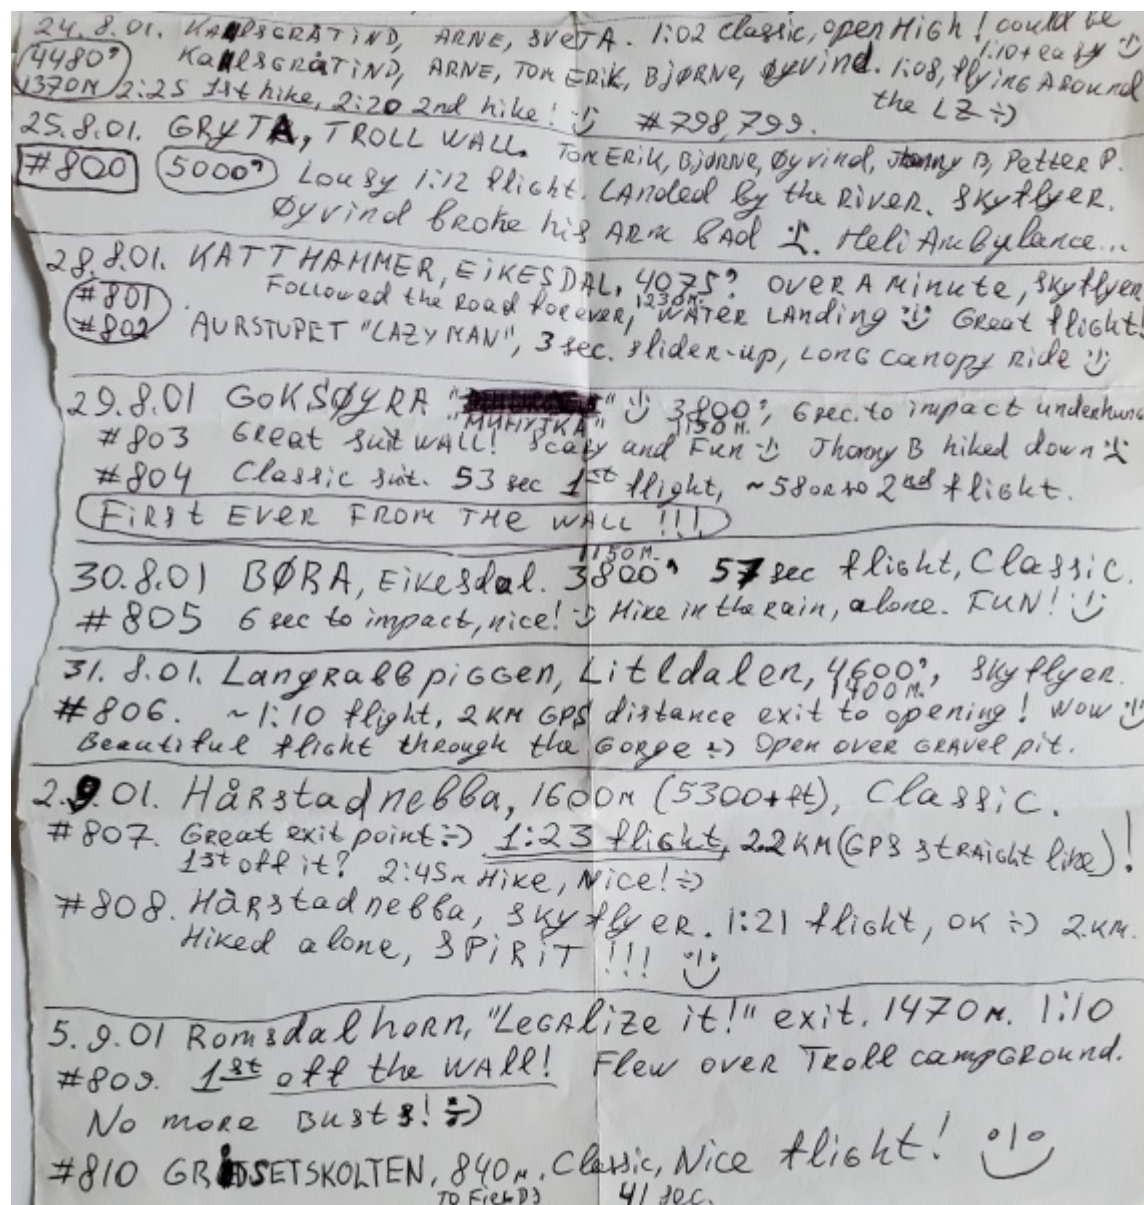 24.8.01. KALSGRÅTIND, ARNE, SVETA. 1:02 classic, open High! could be
4480' KALSGRåTIND, ARNE, TOM ERiK, BjØRNE, øyvind. 1:08, flying Around
1:10+ easy :)
1370M 2:25 1st hike, 2:20 2nd hike! :) #798,799. the LZ :)
25.8.01. GRYTA, TROLL WALL. TOM ERiK, BjØRNE, Øyvind, Jhonny B, Petter P.
#800 5000' Lousy 1:12 flight. LANded by the RiveR. SKYflyeR.
Øyvind broke his ARM BAd :(. Heli AmbylANce...
28.8.01. KATTHAMMER, EiKESDAL, 4075' OVER A Minute, SKyflyer
1230M.
#801 Followed the ROAd foRever, WATER LANding :) GReat flight!
#802 AURSTUPET "LAZY MAN", 3 sec. slider-up, LONG canopy Ride :)
29.8.01 GOKSØYRA :) 3800', 6 sec. to impact underhung
"МИНУТКА" 1150M.
#803 GReat suit WALL! Scary and Fun :) Jhonny B hiked down :(
#804 Classic suit. 53 sec 1st flight, ~58 OR so 2nd flight.
FiRst EVER FROM THE WALL !!!
1150M.
30.8.01 BØRA, Eikesdal. 3800' 57 sec flight, Classic.
#805 6 sec to impact, nice! :) Hike in the Rain, alone. FUN! :)
31.8.01. LangRabb piggen, Litldalen, 4600', SKyflyer.
1400M.
#806. ~1:10 flight, 2 KM GPS distance exit to opening! Wow :)
Beautiful flight through the GoRge :) Open over GRAVel pit.
2.9.01. HåRstadnebba, 1600M (5300+ft), Classic.
#807. GReat exit point :) 1:23 flight, 2.2 KM (GPS stRAight line)!
1st off it? 2:45M Hike, Nice! :)
#808. HåRstadnebba, SKyflyeR. 1:21 flight, OK :) 2KM.
Hiked alone, SPiRiT !!! :)
5.9.01 Romsdalhorn, "LeGAlize it!" exit. 1470M. 1:10
#809. 1st off the WAll! Flew over TRoll campGRound.
No more Busts! :)
#810 GRØDSETSKOLTEN, 840M. Classic, Nice flight! :)
TO FiELDS 41 sec.